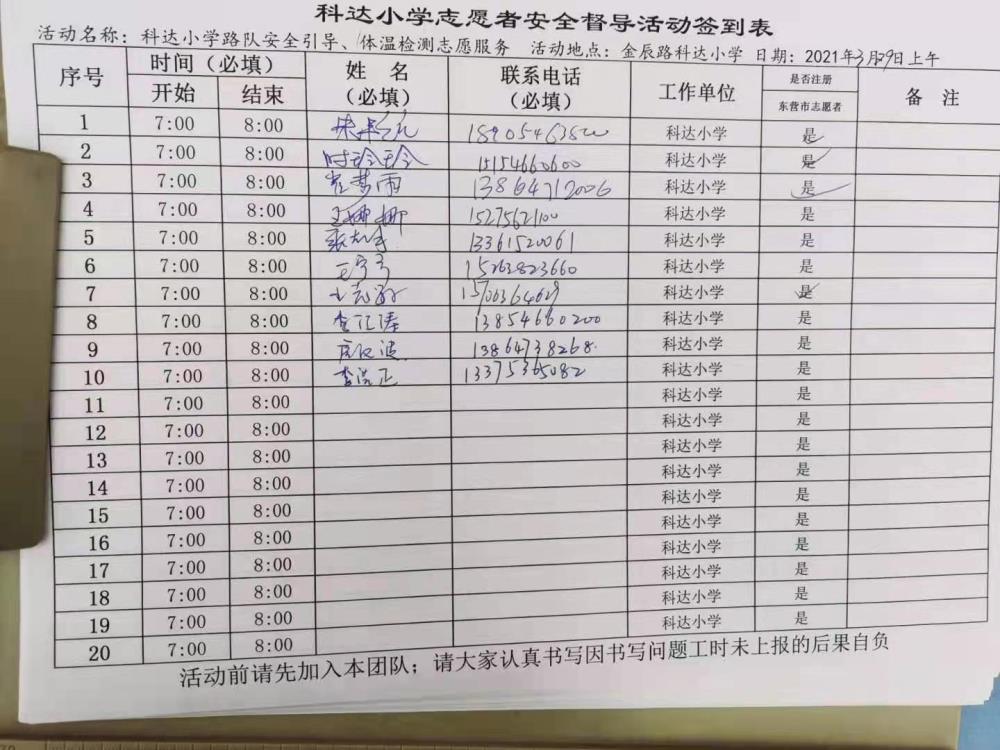 科达小学志愿者安全督导活动签到表
活动名称：科达小学路队安全引导、体温检测志愿服务 活动地点：金辰路科达小学 日期：2021年3月29日上午
序号 时间（必填） 姓 名（必填） 联系电话（必填） 工作单位 是否注册 备 注
开始 结束 东营市志愿者
1 7:00 8:00 科达小学 是
2 7:00 8:00 时玲玲 15154660600 科达小学 是
3 7:00 8:00 13864712006 科达小学 是
4 7:00 8:00 王娜娜 15275621100 科达小学 是
5 7:00 8:00 13361520061 科达小学 是
6 7:00 8:00 15263823660 科达小学 是
7 7:00 8:00 科达小学 是
8 7:00 8:00 13854660200 科达小学 是
9 7:00 8:00 13864738268 科达小学 是
10 7:00 8:00 13375365082 科达小学 是
11 7:00 8:00 科达小学 是
12 7:00 8:00 科达小学 是
13 7:00 8:00 科达小学 是
14 7:00 8:00 科达小学 是
15 7:00 8:00 科达小学 是
16 7:00 8:00 科达小学 是
17 7:00 8:00 科达小学 是
18 7:00 8:00 科达小学 是
19 7:00 8:00 科达小学 是
20 7:00 8:00
活动前请先加入本团队；请大家认真书写因书写问题工时未上报的后果自负